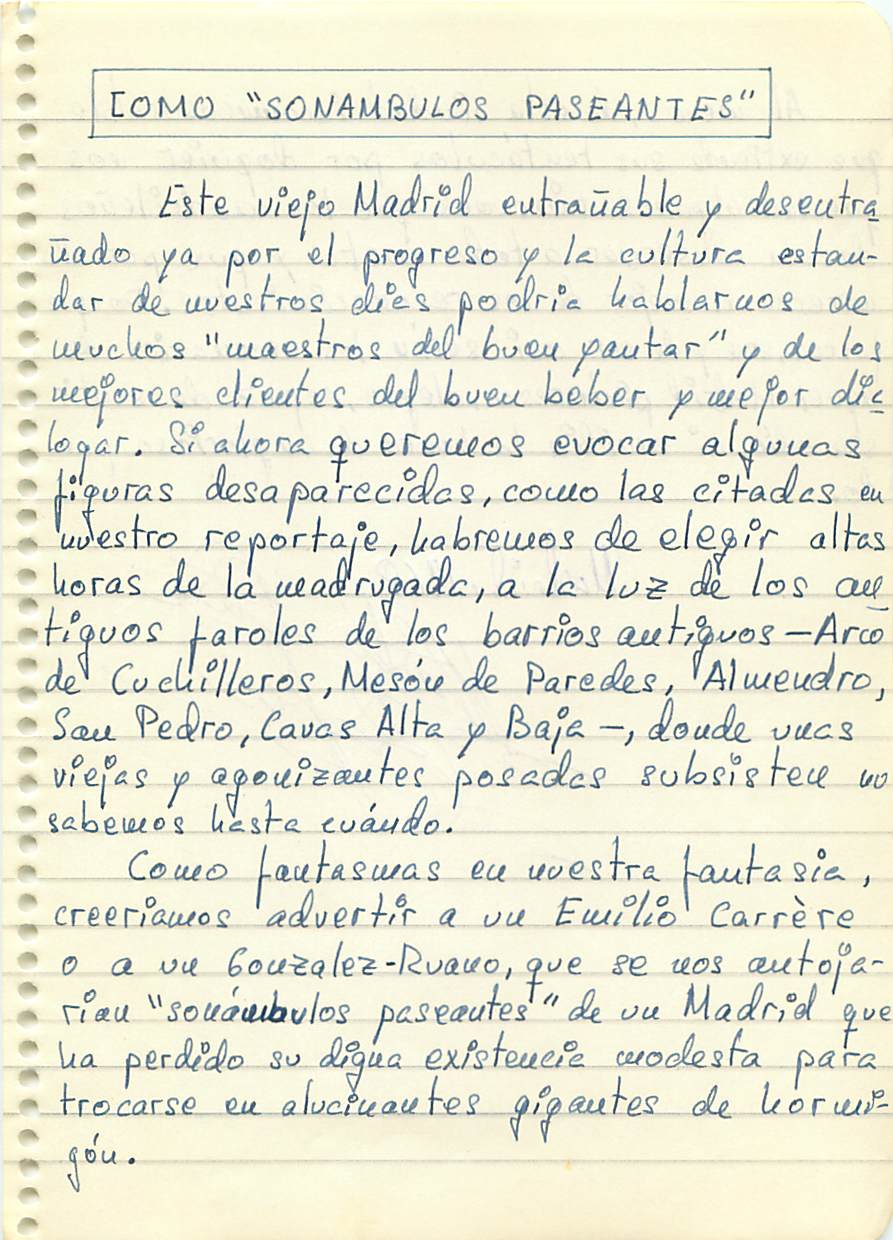 COMO "SONAMBULOS PASEANTES"
Este viejo Madrid entrañable y desentra
ñado ya por el progreso y la cultura estan-
dar de nuestros días podría hablarnos de
muchos "maestros del buen yantar" y de los
mejores clientes del buen beber y mejor dia
logar. Si ahora queremos evocar algunas
figuras desaparecidas, como las citadas en
nuestro reportaje, habremos de elegir altas
horas de la madrugada, a la luz de los an
tiguos faroles de los barrios antiguos —Arco
de Cuchilleros, Mesón de Paredes, Almendro,
San Pedro, Cavas Alta y Baja—, donde unas
viejas y agonizantes posadas subsisten no
sabemos hasta cuándo.
Como fantasmas en nuestra fantasía,
creeríamos advertir a un Emilio Carrère
o a un Gonzalez-Ruano, que se nos antoja-
rían "sonámbulos paseantes" de un Madrid que
ha perdido su digna existencia modesta para
trocarse en alucinantes gigantes de hormi-
gón.